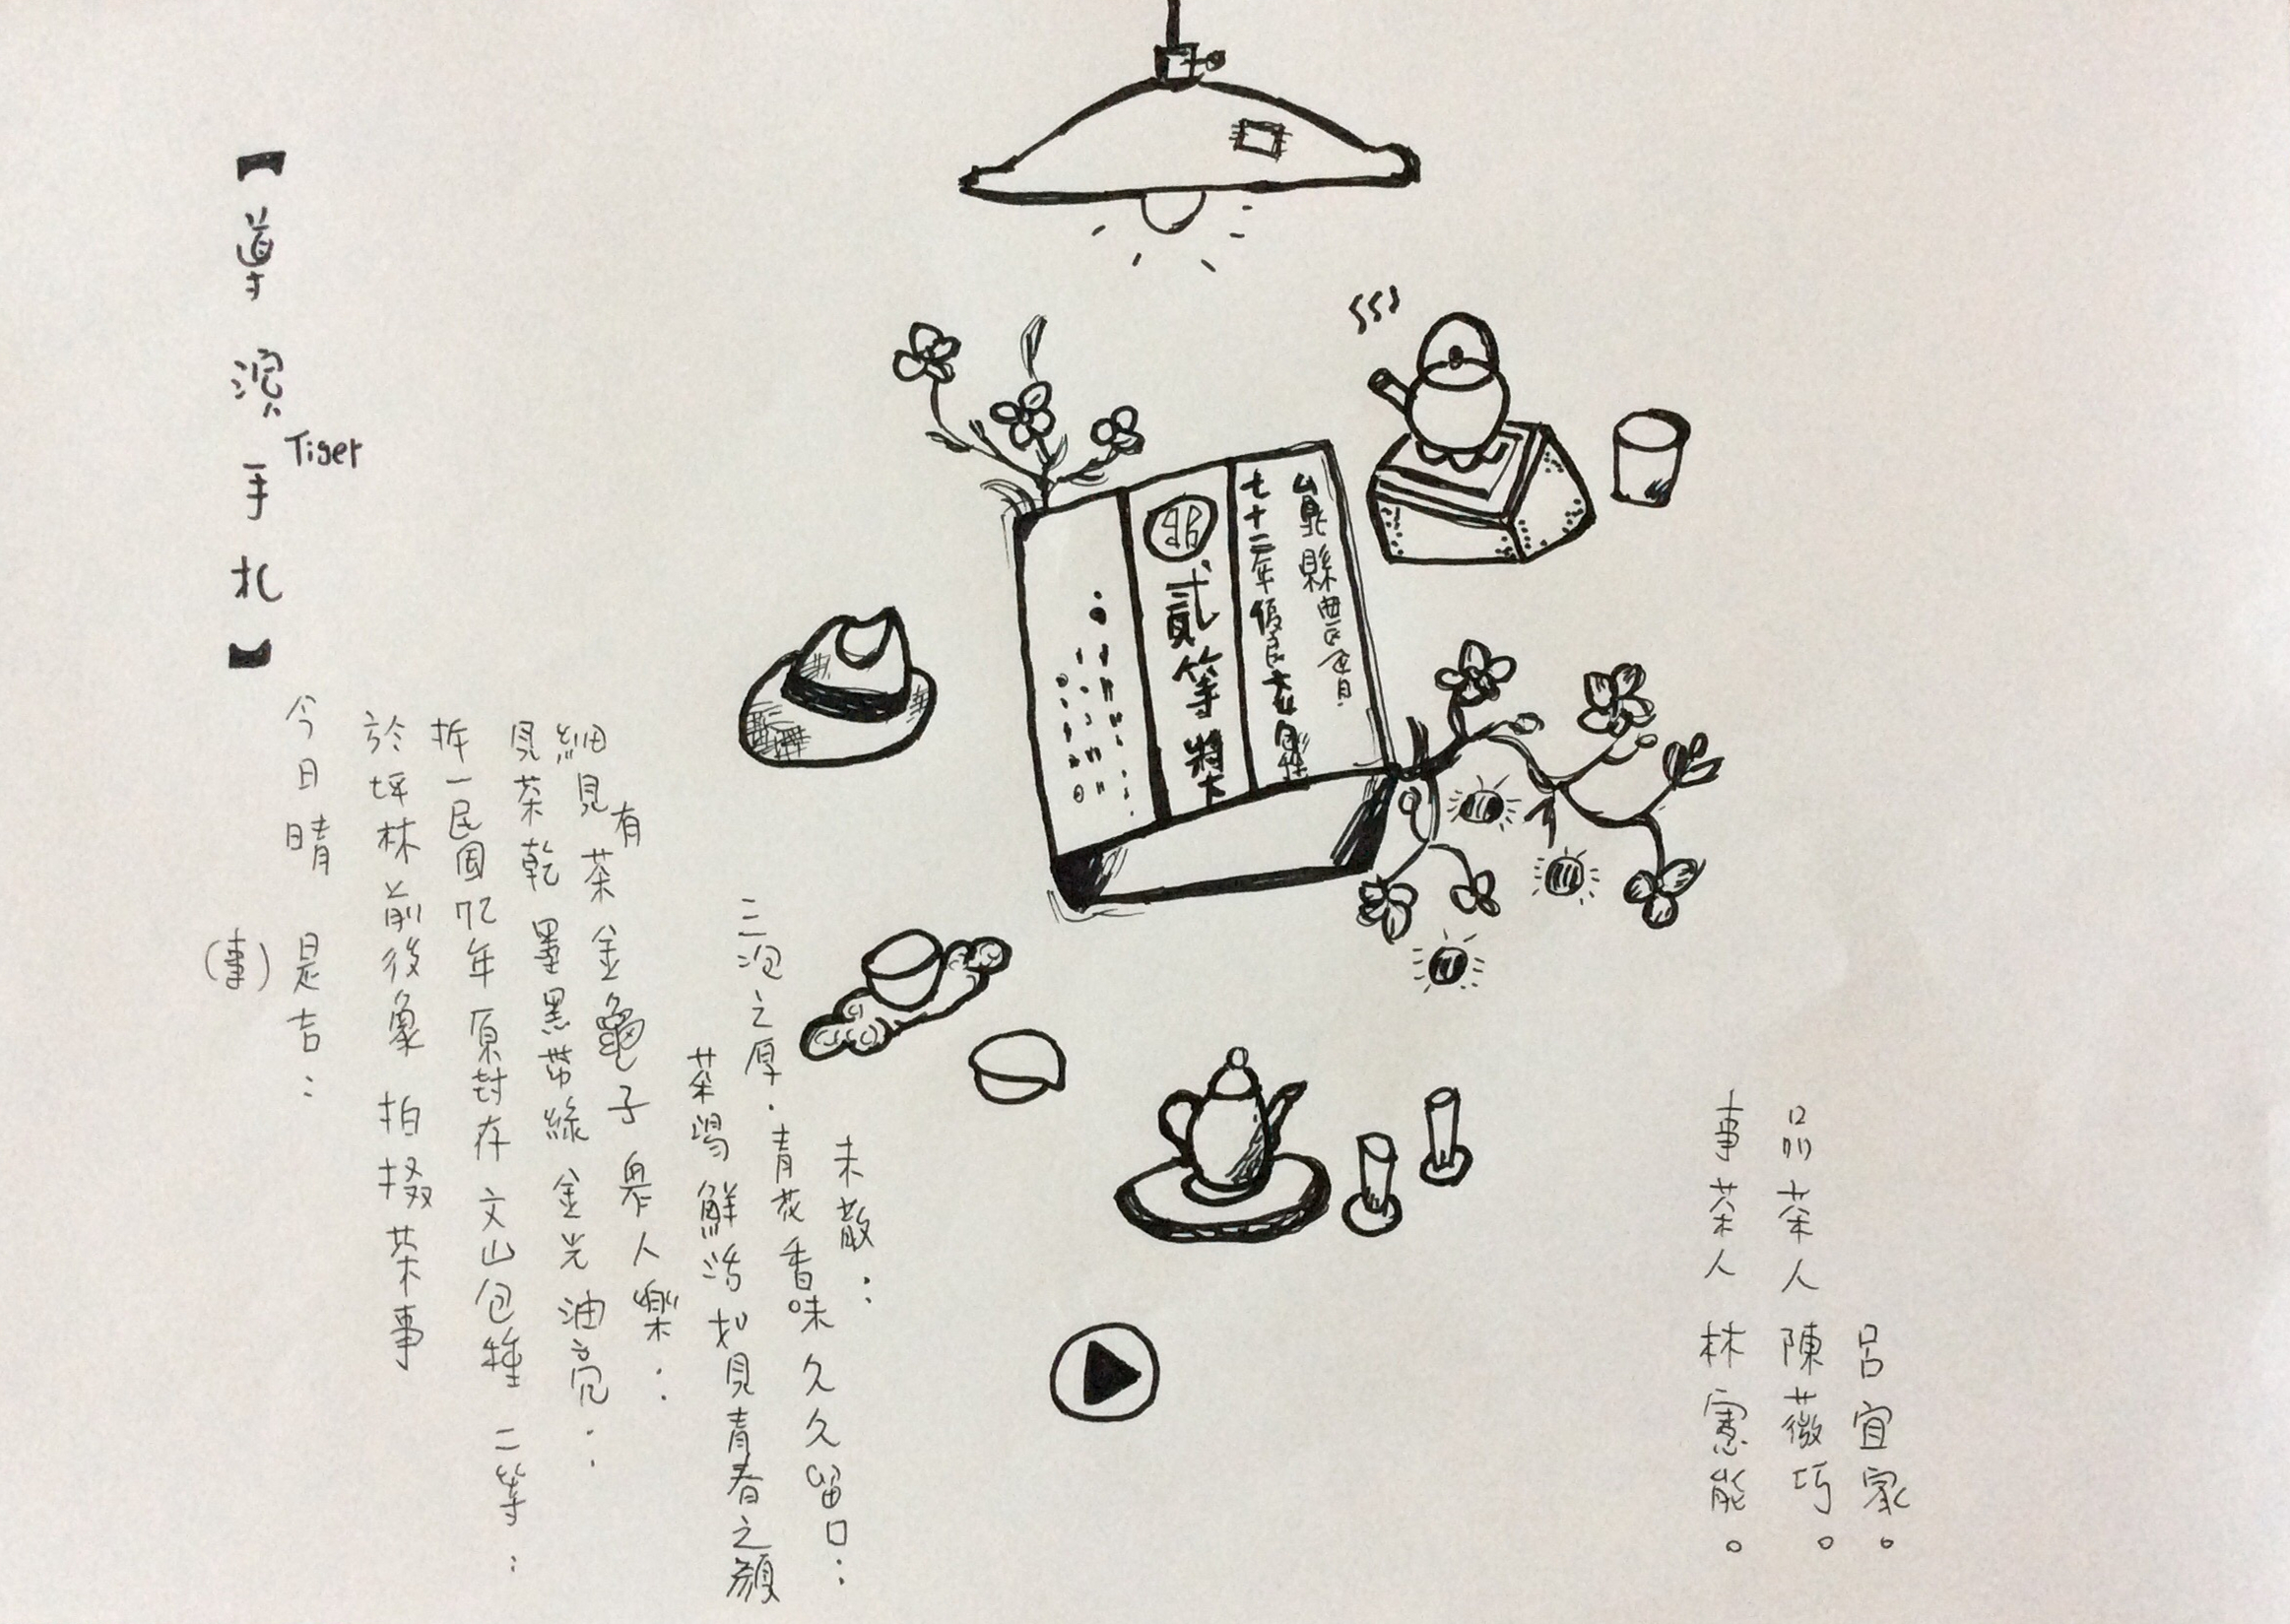 【導演手札】
Tiger
今日晴 是吉：
(事)
於坪林前後象 拍掇茶事
拆一民國72年原封存文山包種 二等：
見茶乾墨黑帶綠金光油亮：
細見有茶金龜子與人樂：
茶湯鮮活如見青春之顏
三泡之厚．青花香味久久留口：
未散：
縣農會
七十二年優良
貳等獎
事茶人林憲能。
品茶人陳薇巧。
呂宜家。